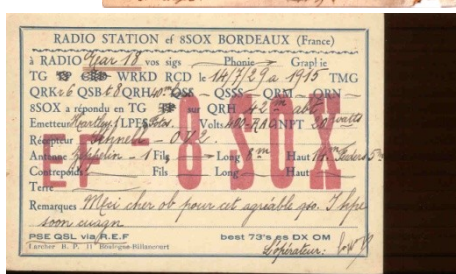 RADIO STATION ef 8SOX BORDEAUX (France)
à RADIO Ear 18 vos sigs Phonie Graphie
TG WRKD RCD le 14/7/29 a 1915 TMG
QRK r6 QSB t8 QRH 40m QSS QSSS QRM QRN
8SOX a répondu en TG sur QRH 42m abt
Emetteur Hartley 1 LPES Fotos Volts 400 RAC NPT 20 watts
Récepteur Schnell O.V.2
Antenne Zeppelin 1 Fils Long Haut
Contrepoids Fils Long Haut
Terre
EF = 8SOX
Remarques Mci cher ob pour cet agréable qso. I hpe
soon cuagn
PSE QSL via R.E.F best 73's es DX OM
Larcher B. P. 11 Boulogne-Billancourt L'opérateur: